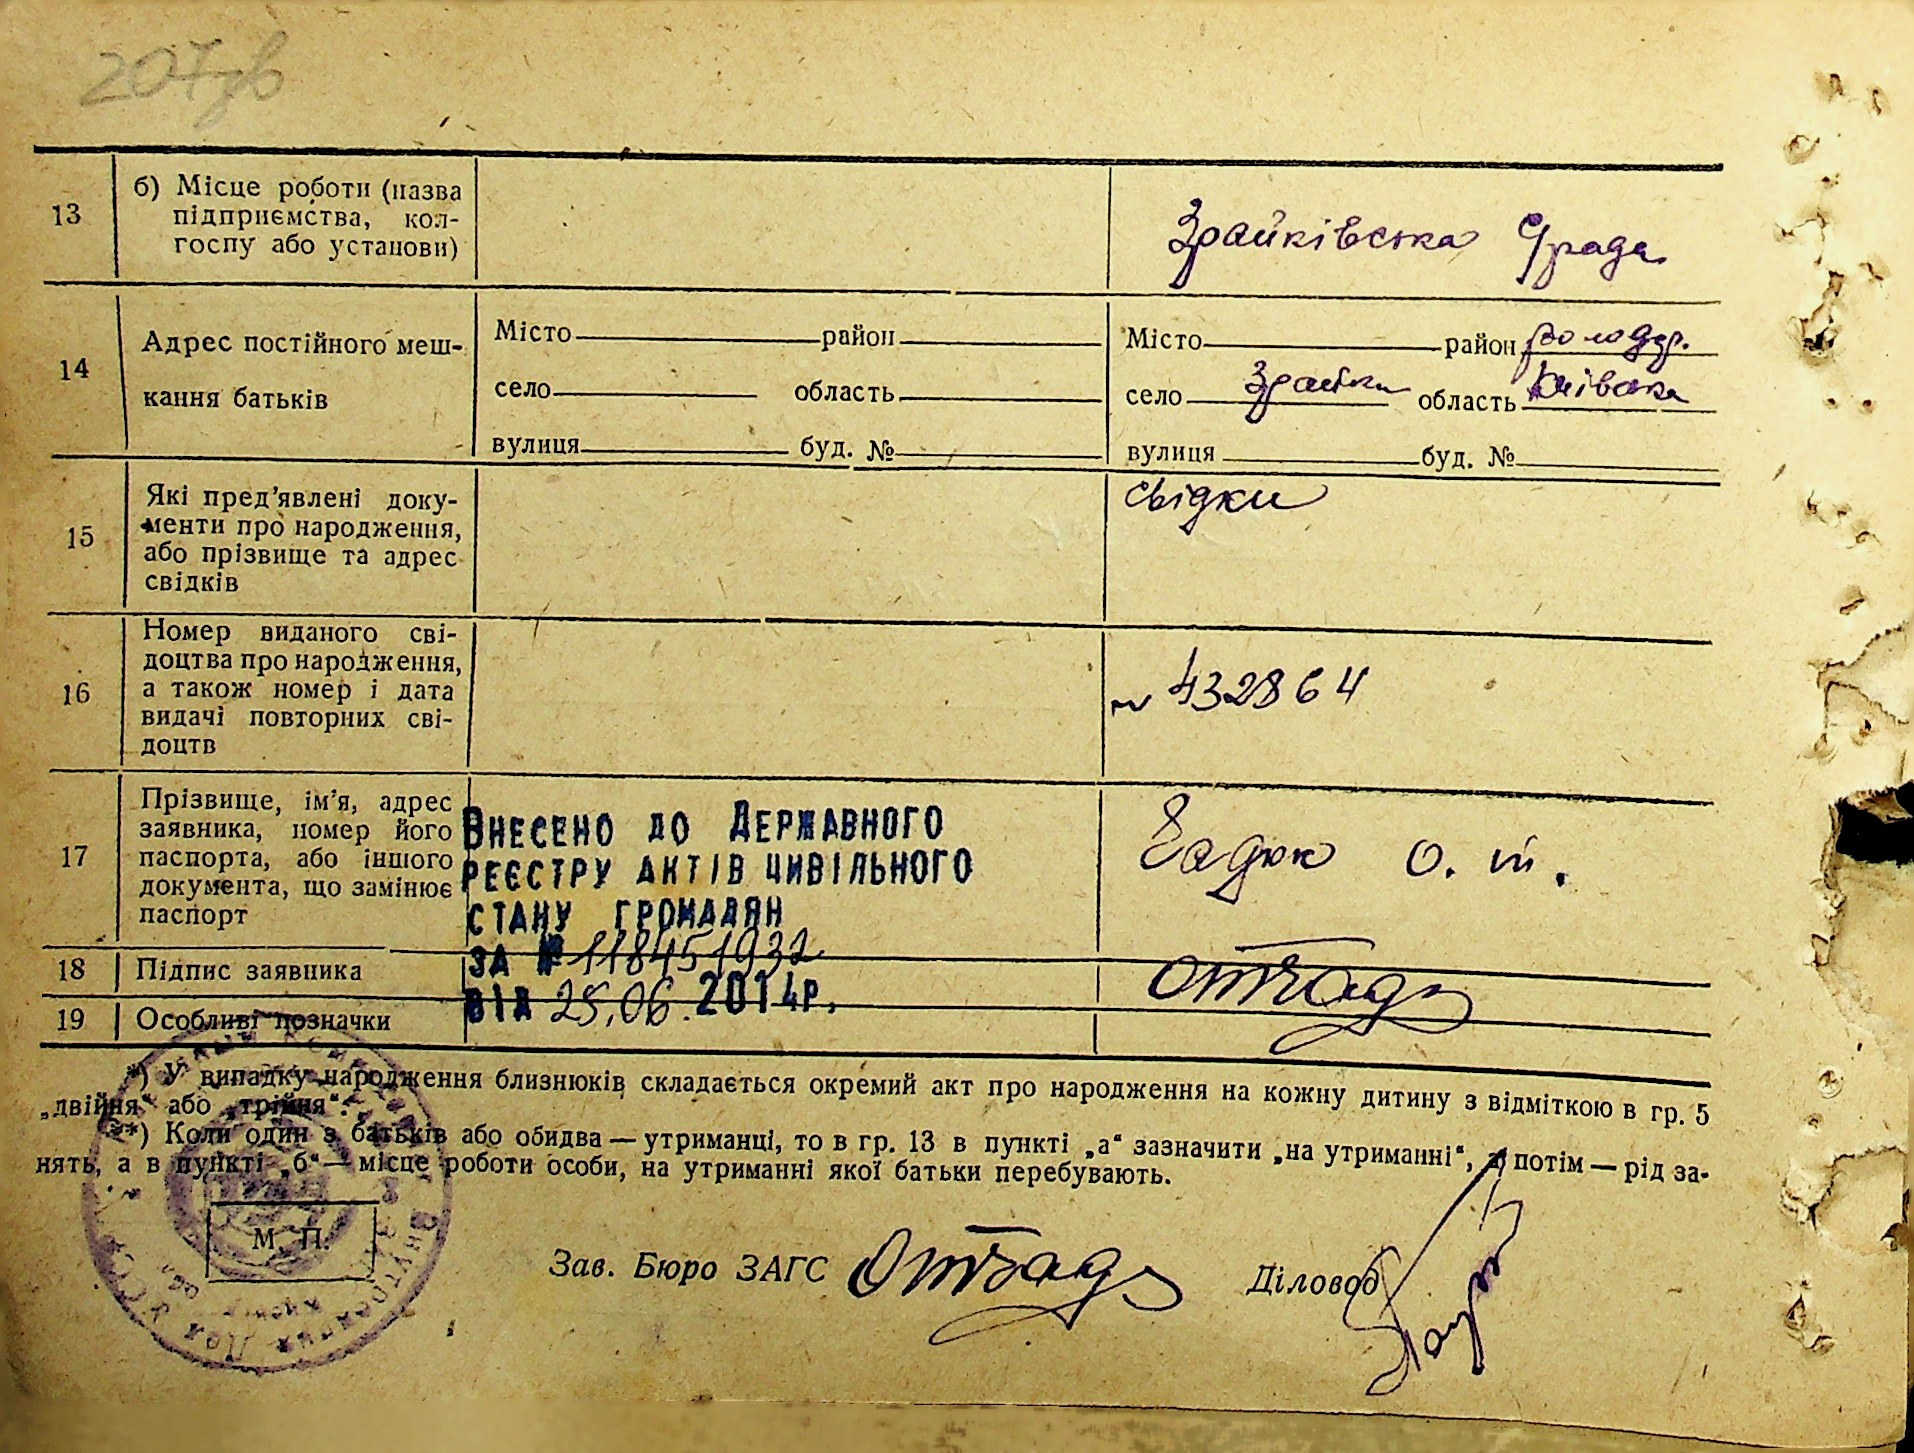 207зв
13
б) Місце роботи (назва
підприємства, кол-
госпу або установи)
Зрайківська С/рада
14
Адрес постійного меш-
кання батьків
Місто район
село область
вулиця буд. №
Місто район володар.
село Зрайки область Київська
вулиця буд. №
15
Які пред’явлені доку-
менти про народження,
або прізвище та адрес
свідків
свідки
16
Номер виданого сві-
доцтва про народження,
а також номер і дата
видачі повторних сві-
доцтв
№ 432864
17
Прізвище, ім’я, адрес
заявника, номер його
паспорта, або іншого
документа, що замінює
паспорт
ВНЕСЕНО ДО ДЕРЖАВНОГО
РЕЄСТРУ АКТІВ ЦИВІЛЬНОГО
СТАНУ ГРОМАДЯН
ЗА № 118451932
ВІД 25.06.2014р.
Гадюк О. Т.
18
Підпис заявника
19
Особливі позначки
*) У випадку народження близнюків складається окремий акт про народження на кожну дитину з відміткою в гр. 5
„двійня“ або „трійня“.
**) Коли один з батьків або обидва — утриманці, то в гр. 13 в пункті „а“ зазначити „на утриманні“, а потім — рід за-
нять, а в пункті „б“ — місце роботи особи, на утриманні якої батьки перебувають.
М. П.
Зав. Бюро ЗАГС
Діловод